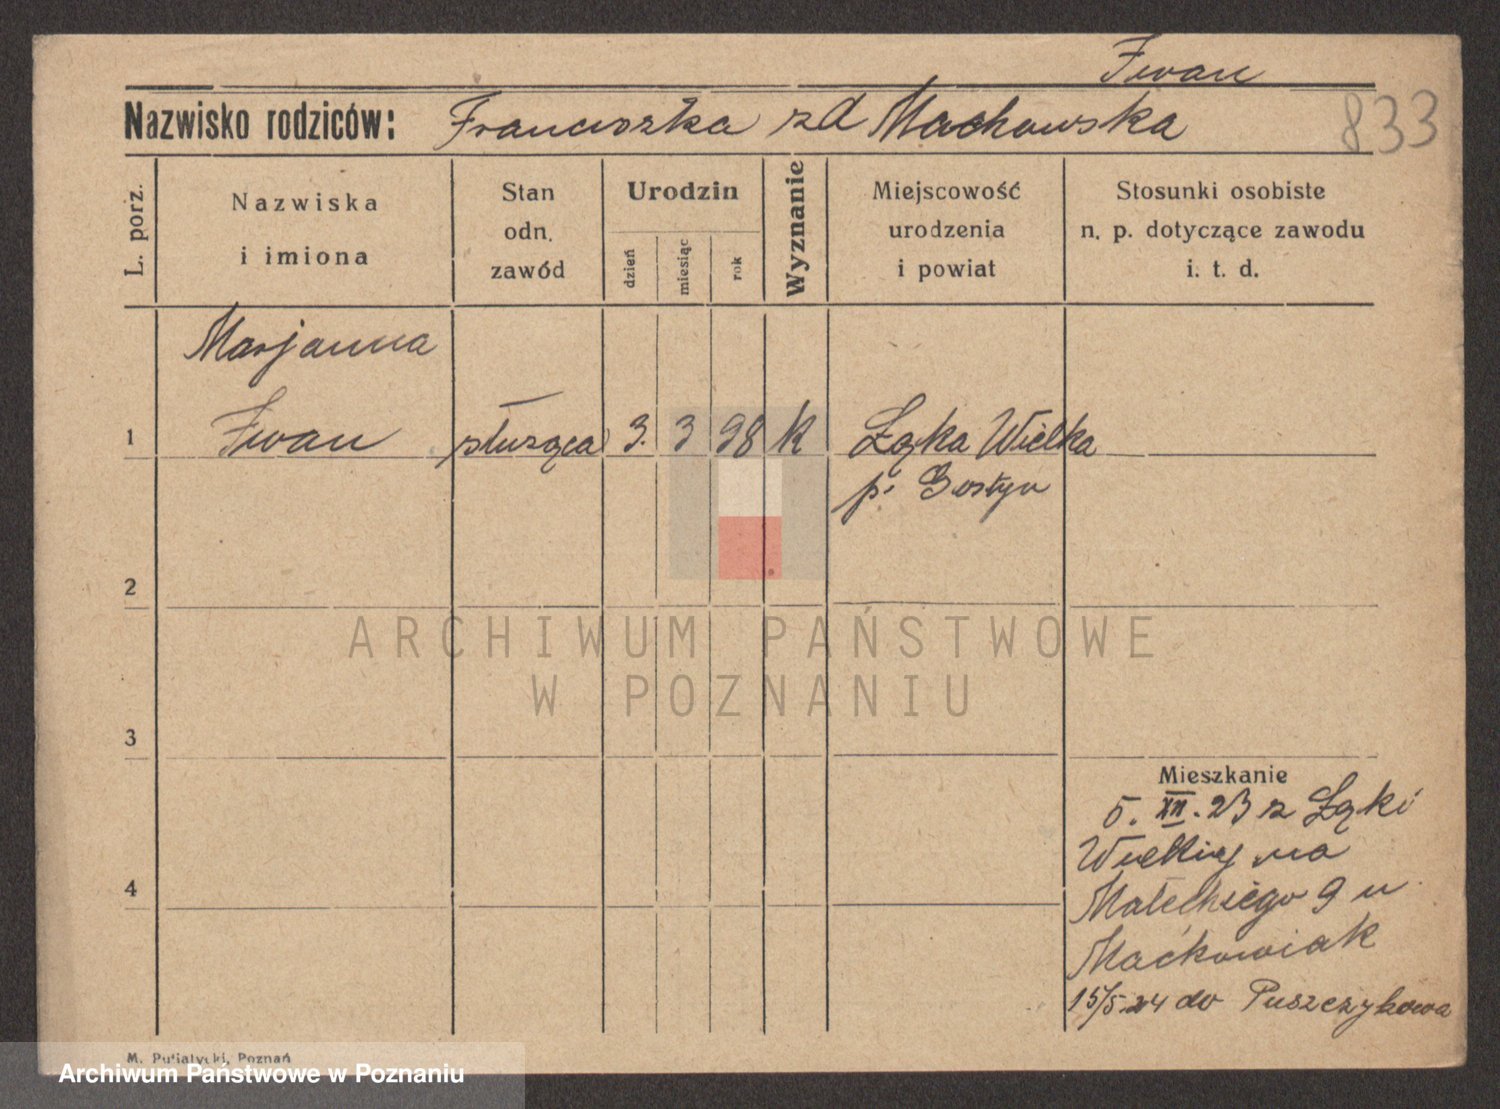 Iwan
Nazwisko rodziców: Franciszka zd Machowska
833
L. porz.
Nazwiska
i imiona
Stan
odn.
zawód
Urodzin
dzień
miesiąc
rok
Wyznanie
Miejscowość
urodzenia
i powiat
Stosunki osobiste
n. p. dotyczące zawodu
i. t. d.
Marjanna
1 Iwan służąca 3. 3 98 k Łąka Wielka
p. Gostyn
2
ARCHIWUM PAŃSTWOWE
W POZNANIU
3
Mieszkanie
5. XII. 23 z Łąki
Wielkiej na
4
Małeckiego 9 u
Maćkowiak
15/5.24 do Puszczykowa
M. Putiatycki, Poznań
Archiwum Państwowe w Poznaniu